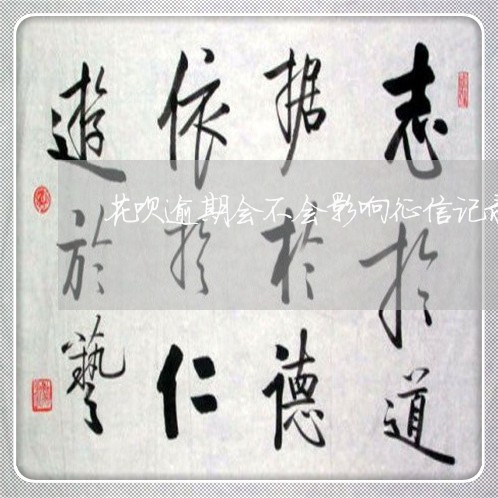 志於道
据於德
依於仁
遊於藝
花吹逾期会不会影响征信记